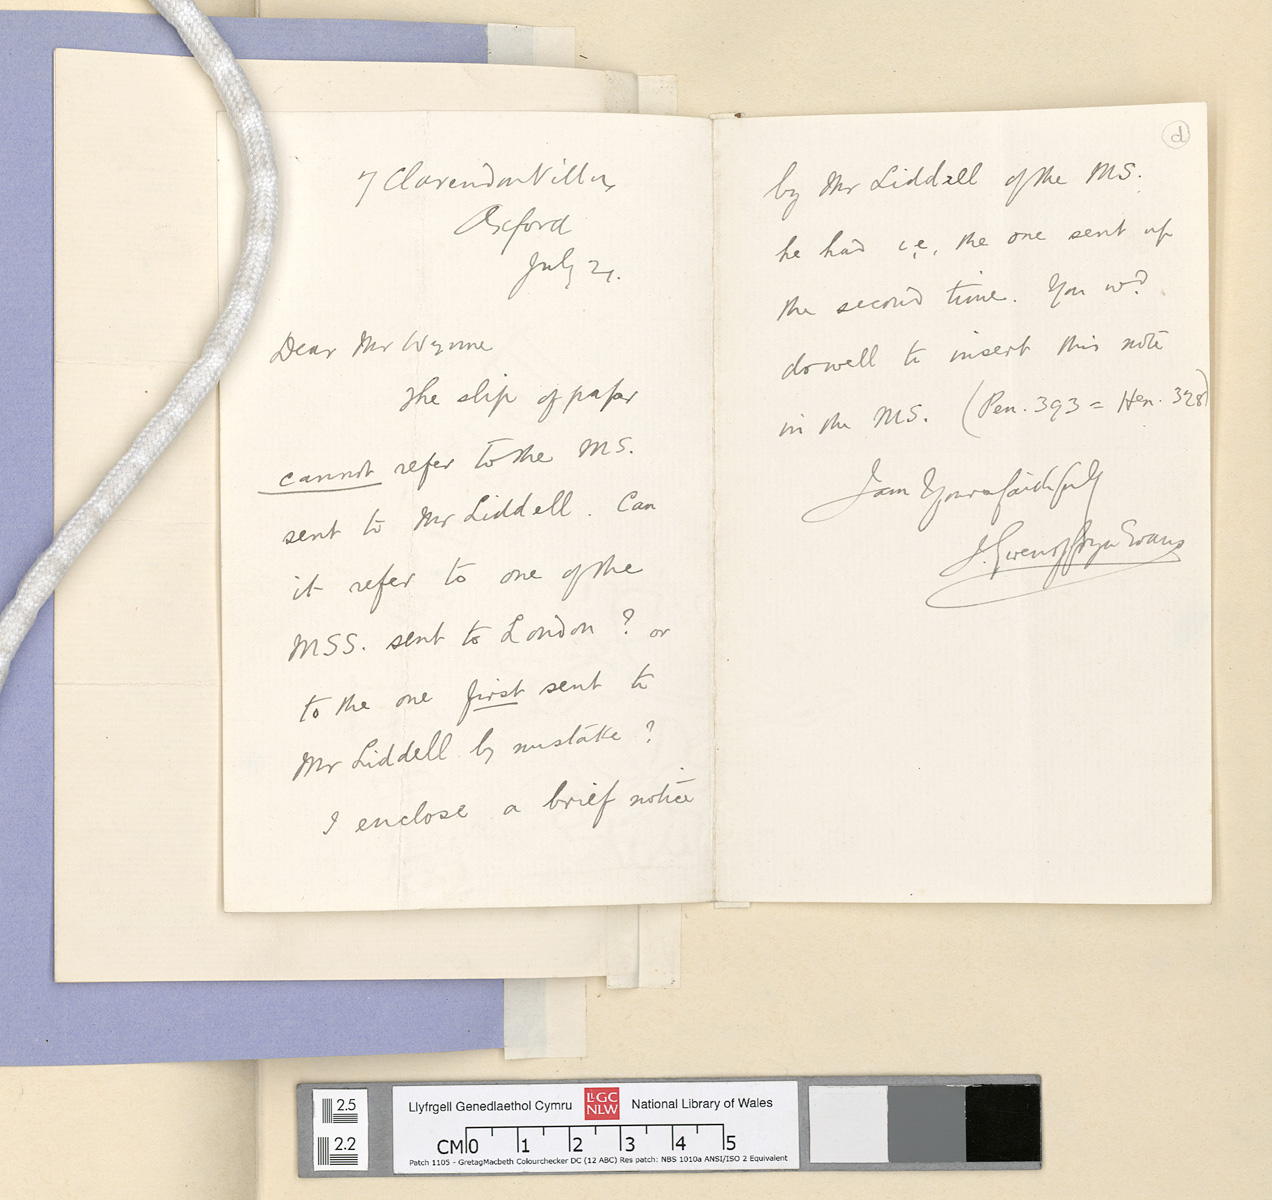 7 Clarendon Villas
Oxford
July 21.
Dear Mr Wynne
The slip of paper
cannot refer to the MS.
sent to Mr Liddell. Can
it refer to one of the
MSS. sent to London? or
to the one first sent to
Mr Liddell by mistake?
I enclose a brief notice
d
by Mr Liddell of the MS.
he had i.e. the one sent up
the second time. You wd
do well to insert this note
in the MS. (Pen. 393 = Hen. 328)
I am Yours faithfully
J. Gwenogfryn Evans
2.5
2.2
Llyfrgell Genedlaethol Cymru LLGC NLW National Library of Wales
CM 0 1 2 3 4 5
Patch 1105 - GretagMacbeth Colourchecker DC (12 ABC) Res patch: NBS 1010a ANSI/ISO 2 Equivalent